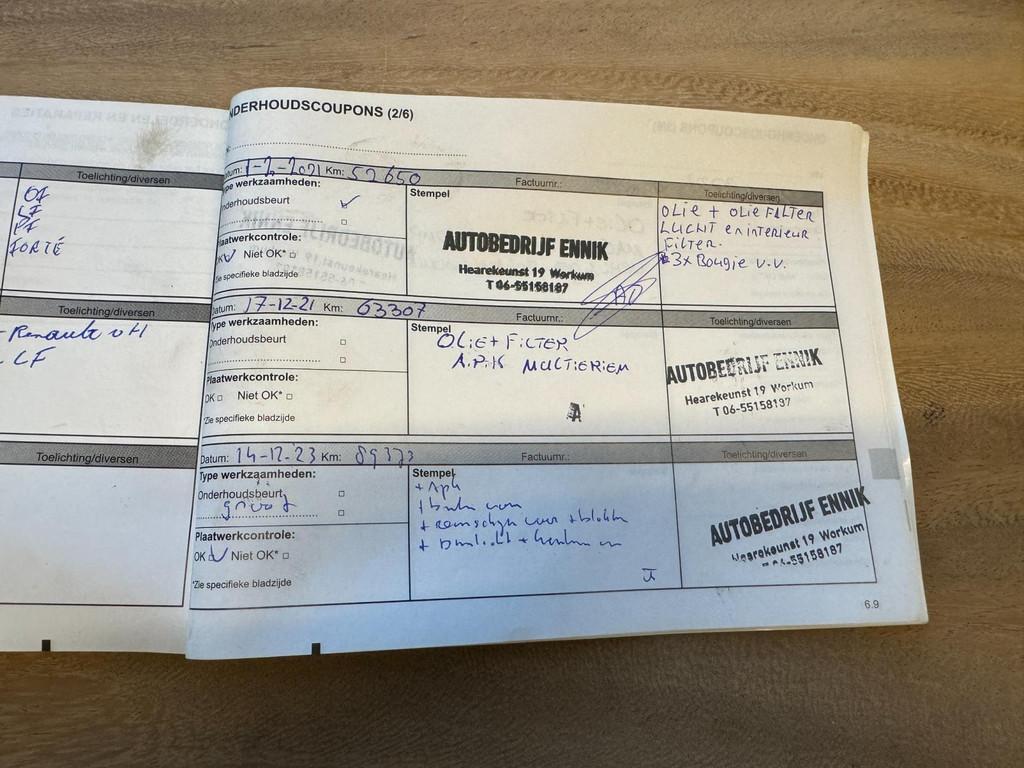 Toelichting/diversen
OF
FF
FORTÉ
Toelichting/diversen
LF
Toelichting/diversen
NDERHOUDSCOUPONS (2/6)
tum: 1-2-2021 Km: 52650
Factuurnr.:
Toelichting/diversen
pe werkzaamheden:
nderhoudsbeurt
laatwerkcontrole:
Niet OK*
Zie specifieke bladzijde
Stempel
AUTOBEDRIJF ENNIK
Hearekeunst 19 Workum
T 06-55158187
OLIE + OLIE FILTER
LUCHT en interieur
FILTER.
3x Bougie v.v.
Datum: 17-12-21 Km: 63307
Factuurnr.:
Toelichting/diversen
Type werkzaamheden:
Onderhoudsbeurt
Plaatwerkcontrole:
OK Niet OK*
*Zie specifieke bladzijde
Stempel
OLIE + FILTER
A.P.K MULTIERIEM
AUTOBEDRIJF ENNIK
Hearekeunst 19 Workum
T 06-55158187
Datum: 14-12-23 Km: 89373
Factuurnr.:
Toelichting/diversen
Type werkzaamheden:
Onderhoudsbeurt
groot
Plaatwerkcontrole:
OK Niet OK*
*Zie specifieke bladzijde
Stempel
+ Apk
AUTOBEDRIJF ENNIK
Hearekeunst 19 Workum
06-55158187
6.9